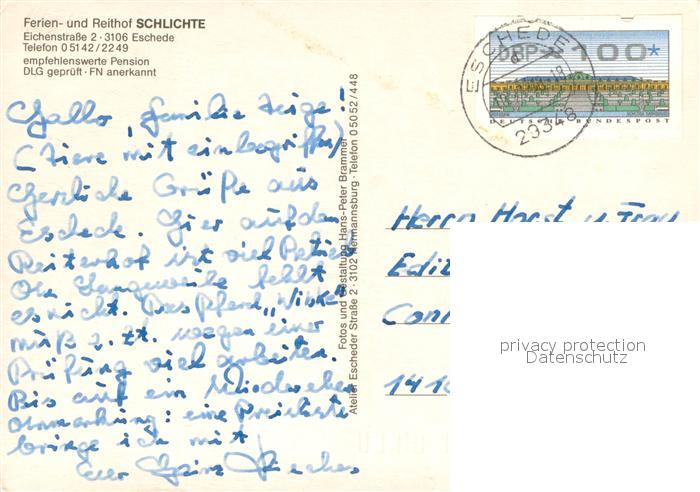 Ferien- und Reithof SCHLICHTE
Eichenstraße 2 · 3106 Eschede
Telefon 0 51 42 / 22 49
empfehlenswerte Pension
DLG geprüft · FN anerkannt
Hallo Familie
(Tiere mit einbegriffen)
Herzliche Grüße aus
Eschede. Hier auf dem
Reiterhof ist viel Betrieb
Langeweile fehlt
es nicht. Das Pferd
muß z. Zt. wegen einer
Prüfung viel arbeiten.
Bis auf ein
eine Preisliste
bringe ich mit
Euer Heinz
Fotos und Gestaltung Hans-Peter Brammer
Atelier Escheder Straße 2 · 3102 Hermannsburg · Telefon 0 50 52 / 448
ESCHEDE
23348
DBP 100*
DEUTSCHE BUNDESPOST
Herrn Horst u. Frau
Edit
Conr
141
privacy protection
Datenschutz